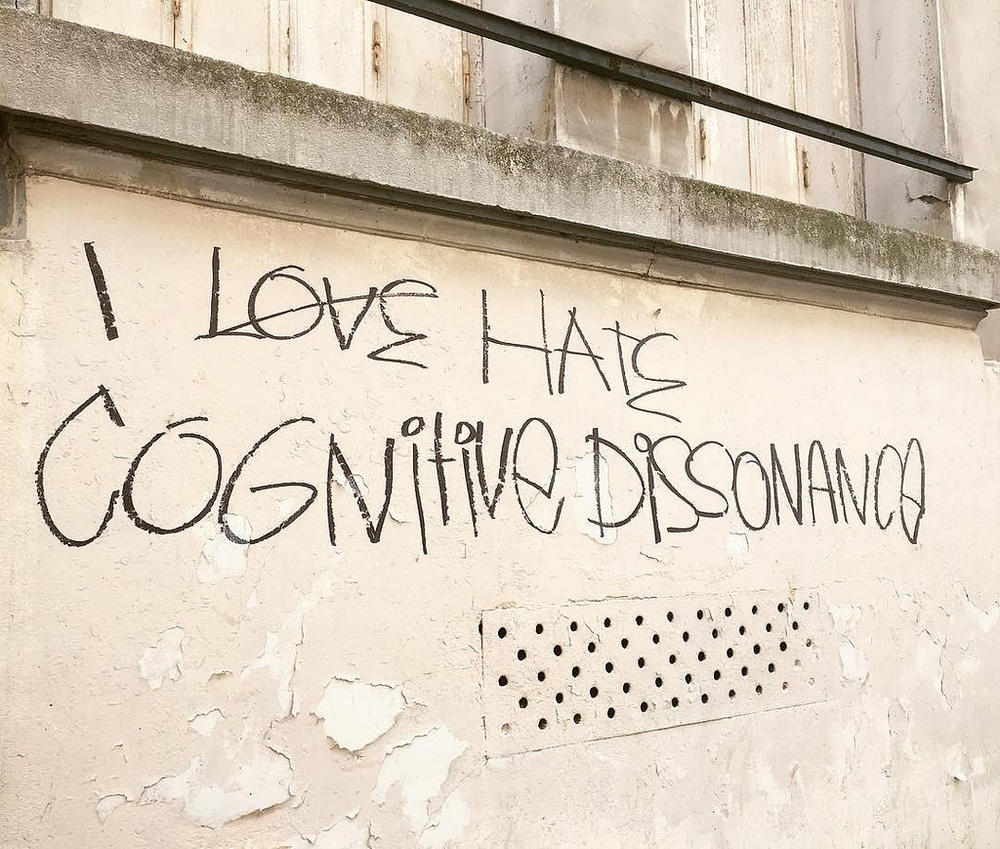 I LOVE HATE
COGNitiVe DiSSONANCe